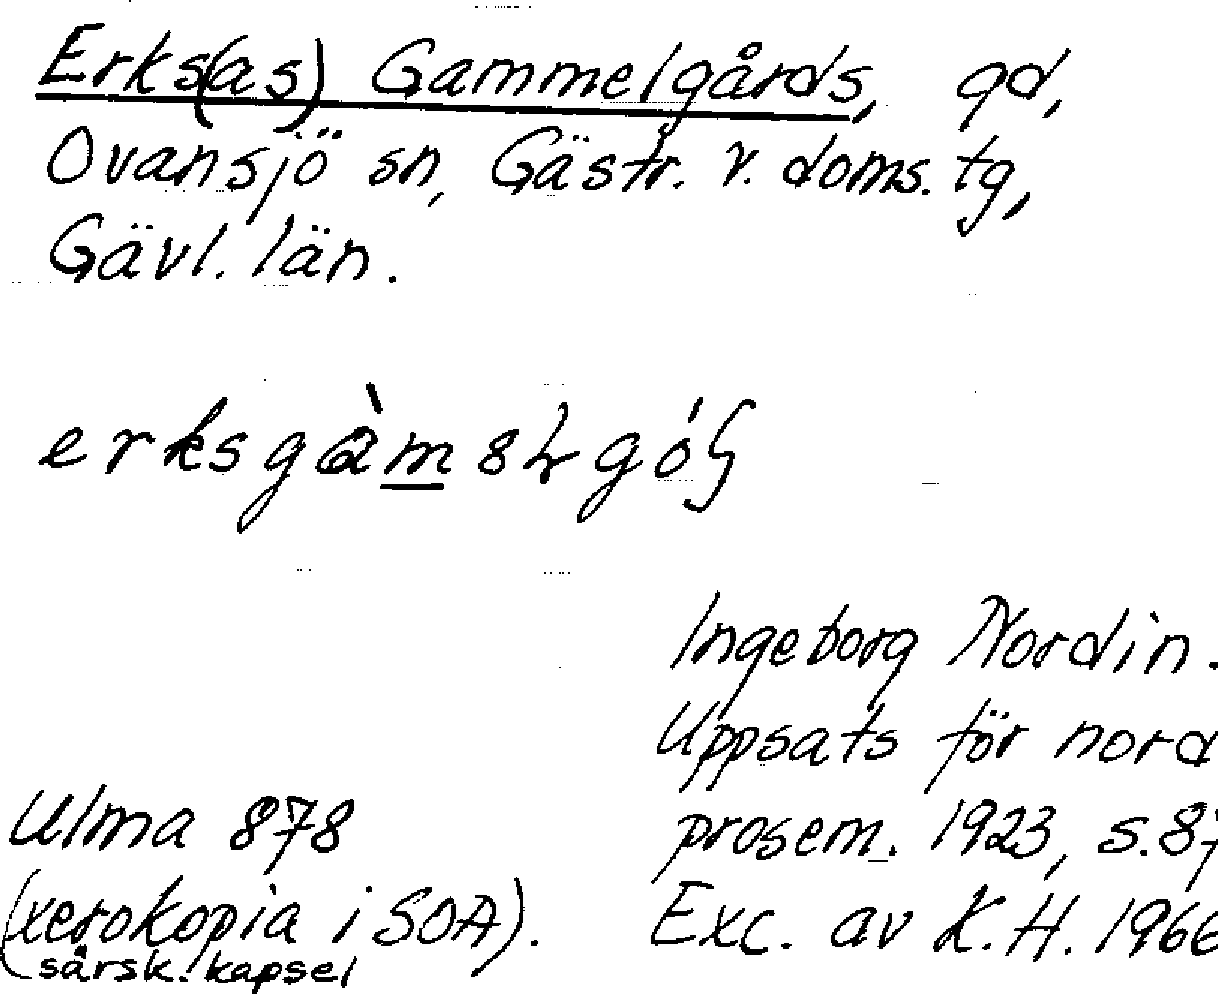 Erks(as) Gammelgårds, gd,
Ovansjö sn, Gästr. v. doms. tg,
Gävl. län.
Ingeborg Nordin.
Uppsats för nord
prosem. 1923, s.87
Exc. av K.H. 1966
Ulma 878
(xerokopia i SOA).
särsk. kapsel